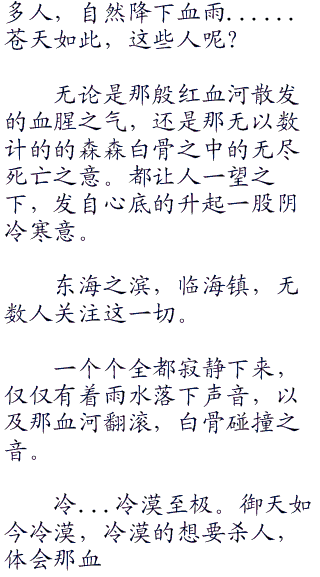 多人，自然降下血雨......
苍天如此，这些人呢？
无论是那殷红血河散发
的血腥之气，还是那无以数
计的的森森白骨之中的无尽
死亡之意。都让人一望之
下，发自心底的升起一股阴
冷寒意。
东海之滨，临海镇，无
数人关注这一切。
一个个全都寂静下来，
仅仅有着雨水落下声音，以
及那血河翻滚，白骨碰撞之
音。
冷...冷漠至极。御天如
今冷漠，冷漠的想要杀人，
体会那血